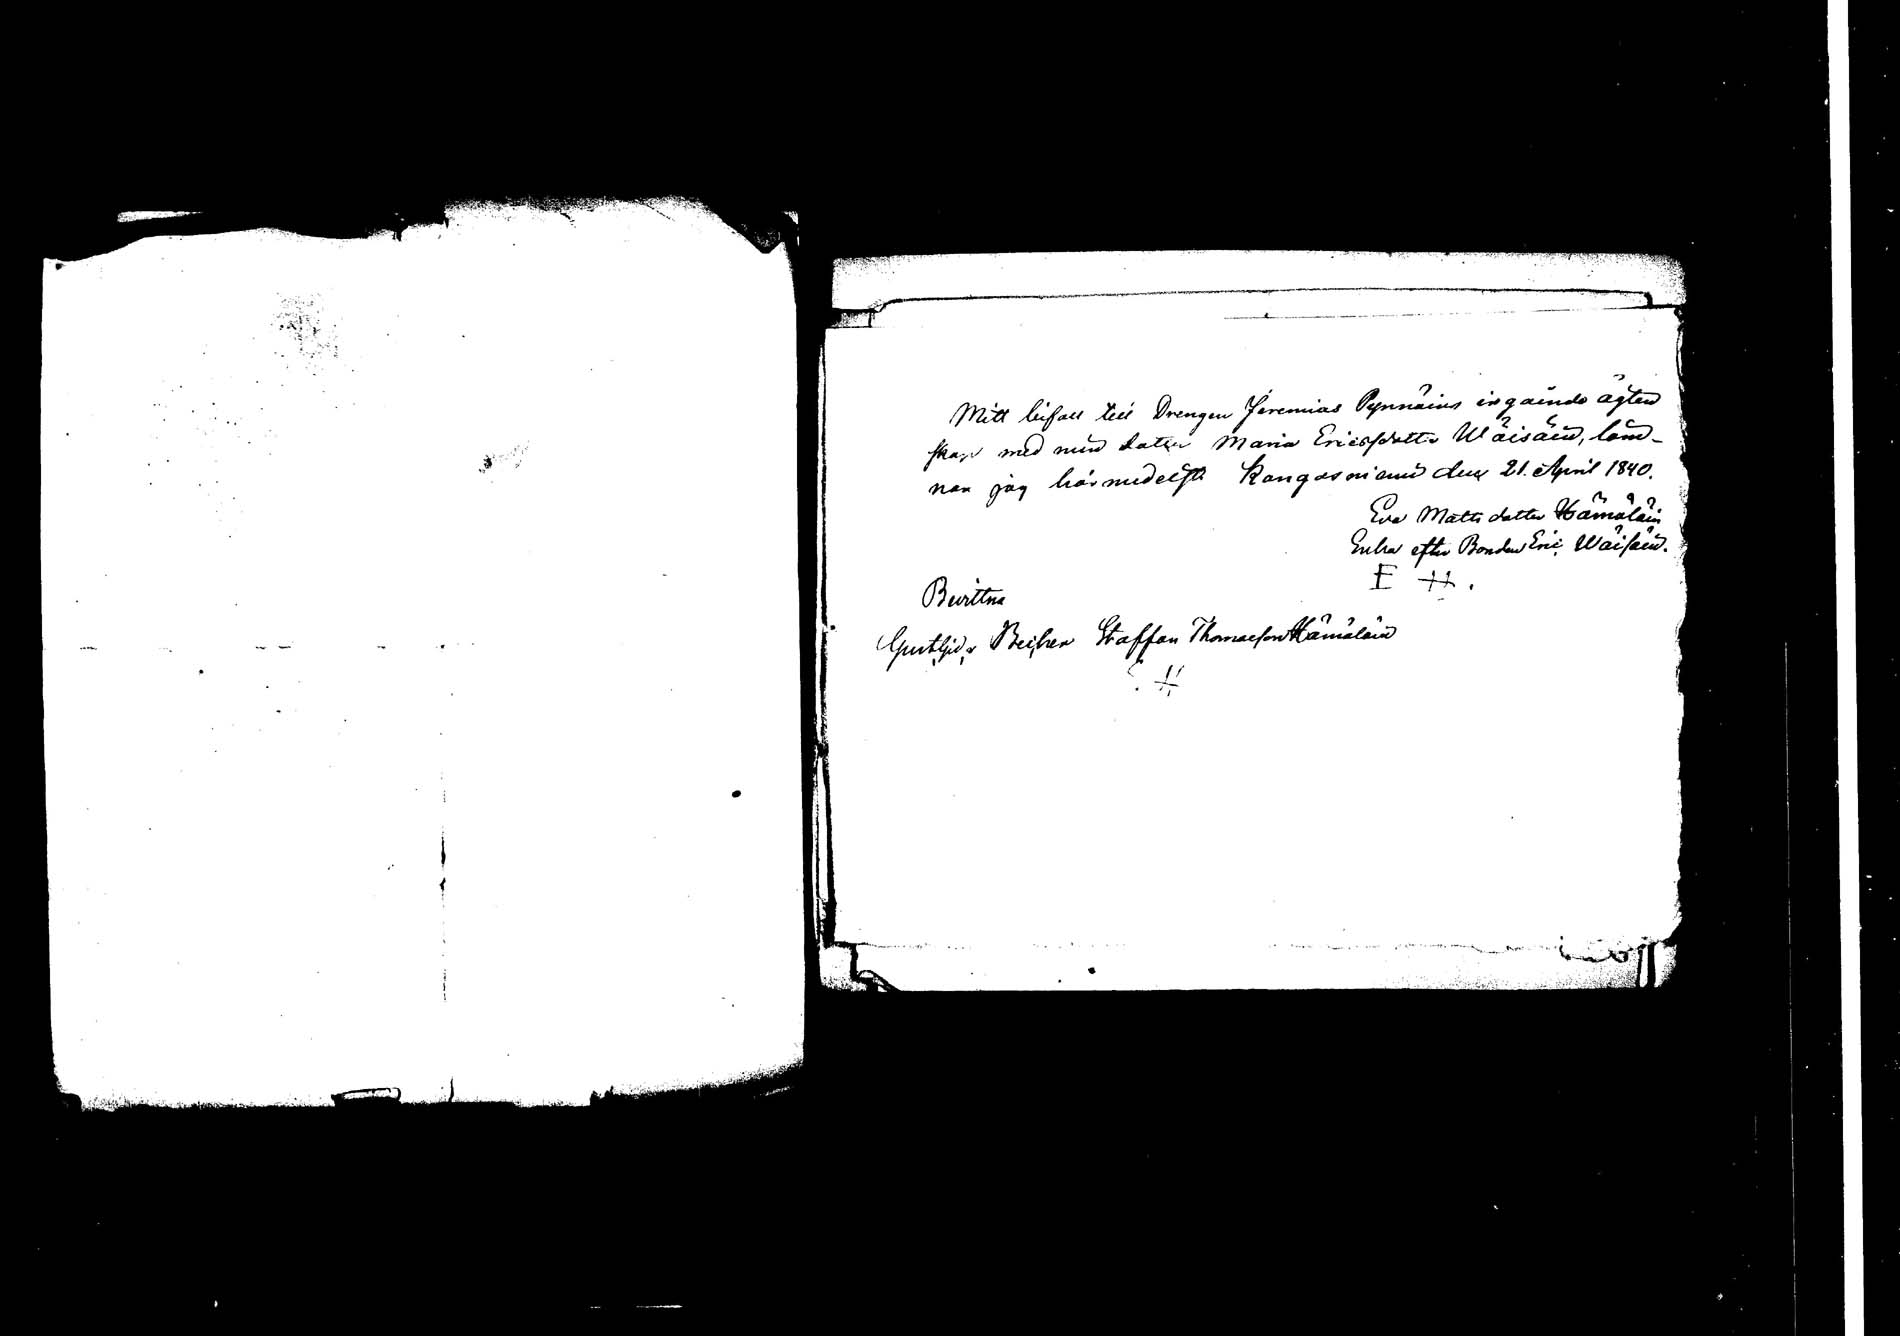 Mitt bifall till Drengen Jeremias Pynnäins ingående ägten
skap med min dotter Maria Ericsdotter Wäisäin, läm-
nar jag härmedelst Kangasniemi den 21. April 1840.
Eva Matts dotter Hämäläin
Enka efter Bonden Eric Wäisäin.
E H.
Bevittna
Staffan Thomasson Hämäläin
S. H